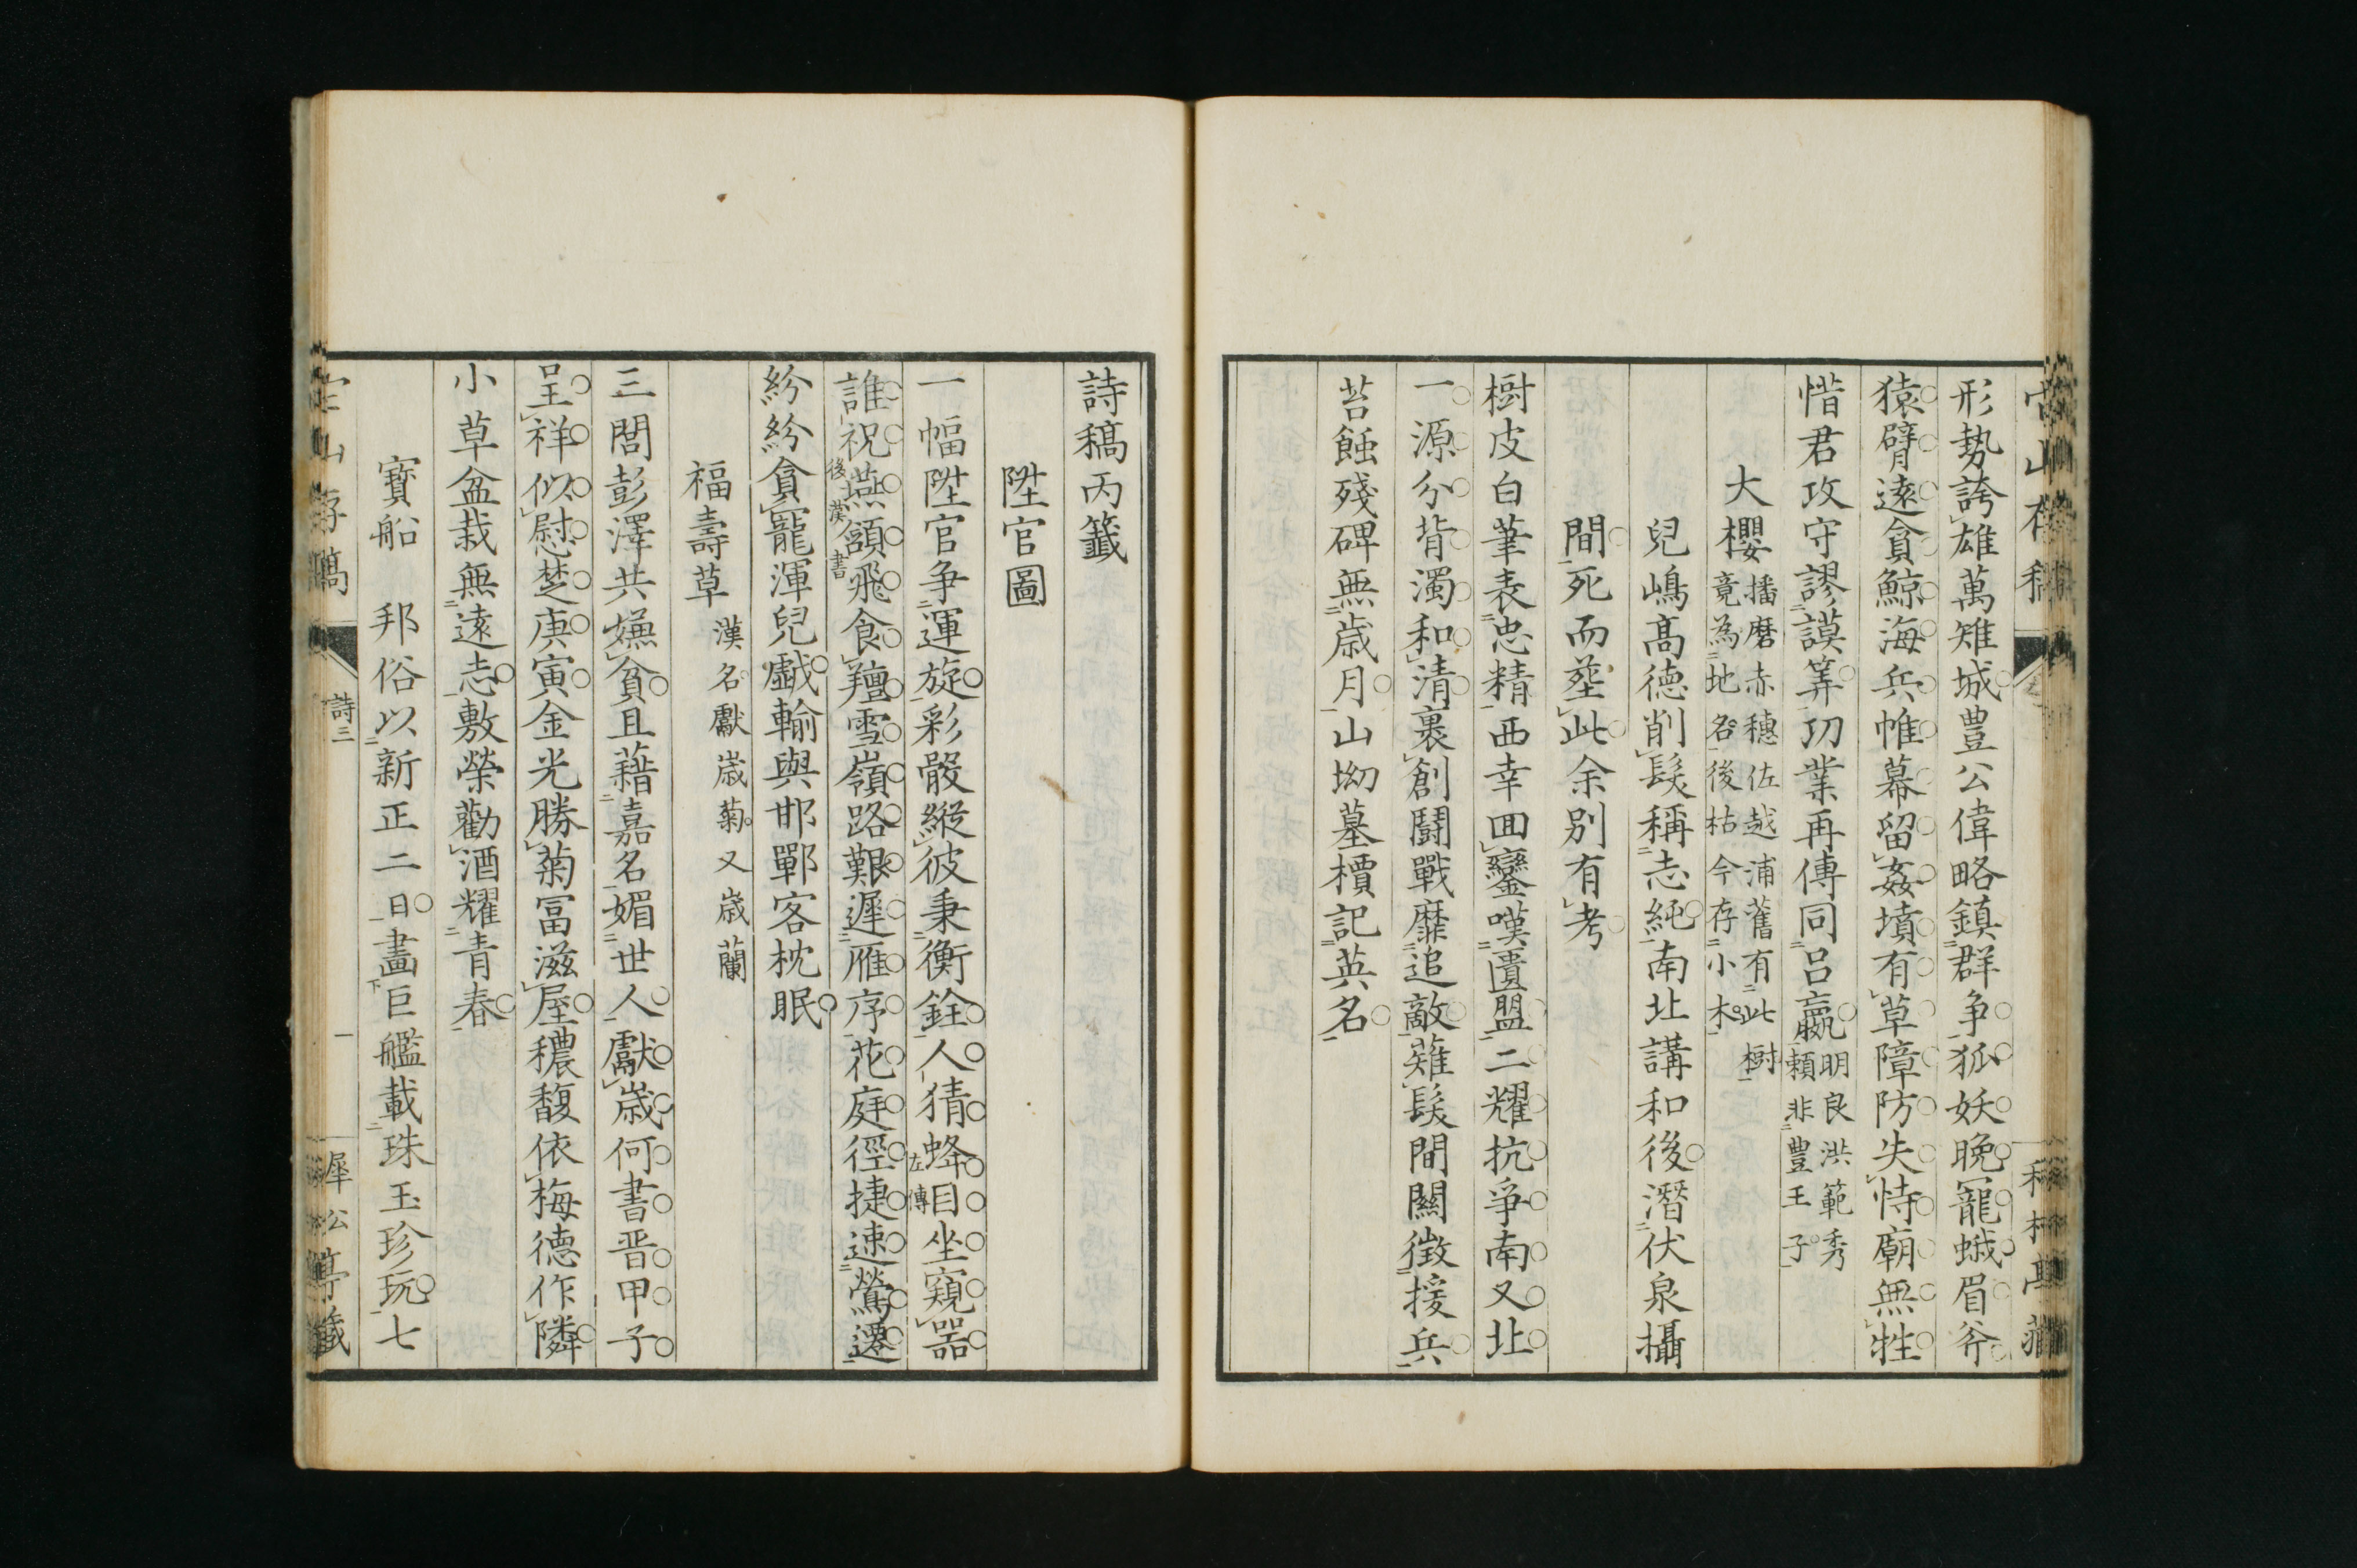 形勢誇雄萬雉城豊公偉略鎮群争狐妖晚寵蛾眉斧
猿臂遠貪鯨海兵帷幕留姦墳有草障防失恃廟無牲
惜君攻守謬謨筭功業再傳同呂嬴明良洪範秀
頼非豊王子
大櫻播磨赤穗佐越浦舊有此樹
竟為地名後枯今存小木
兒嶋髙德削髮稱志純南北講和後潛伏泉攝
間死而塟此余別有考
樹皮白筆表忠精西幸囬鑾嘆匱盟二耀抗爭南又北
一源分背濁和清裹創鬪戰靡追敵薙髮間關徵援兵
苔蝕殘碑無歳月山坳墓檟記英名
詩稿丙籤
陞官圖
一幅陞官争運旋彩骰縱彼秉衡銓人猜蜂目坐窺噐
左傳
誰祝燕頷飛食羶雪嶺路艱遲雁序花庭徑捷速鶯遷
後漢書
紛紛貪寵渾兒戯輸與邯鄲客枕眠
福壽草漢名獻歳菊又歳蘭
三閭彭澤共嫌貧且藉嘉名媚世人獻歳何書晋甲子
呈祥似慰楚庚寅金光勝菊冨滋屋穠馥依梅德作隣
小草盆栽無遠志敷榮勸酒耀青春
寳船邦俗以新正二日畫巨艦載珠玉珍玩七
詩三
一